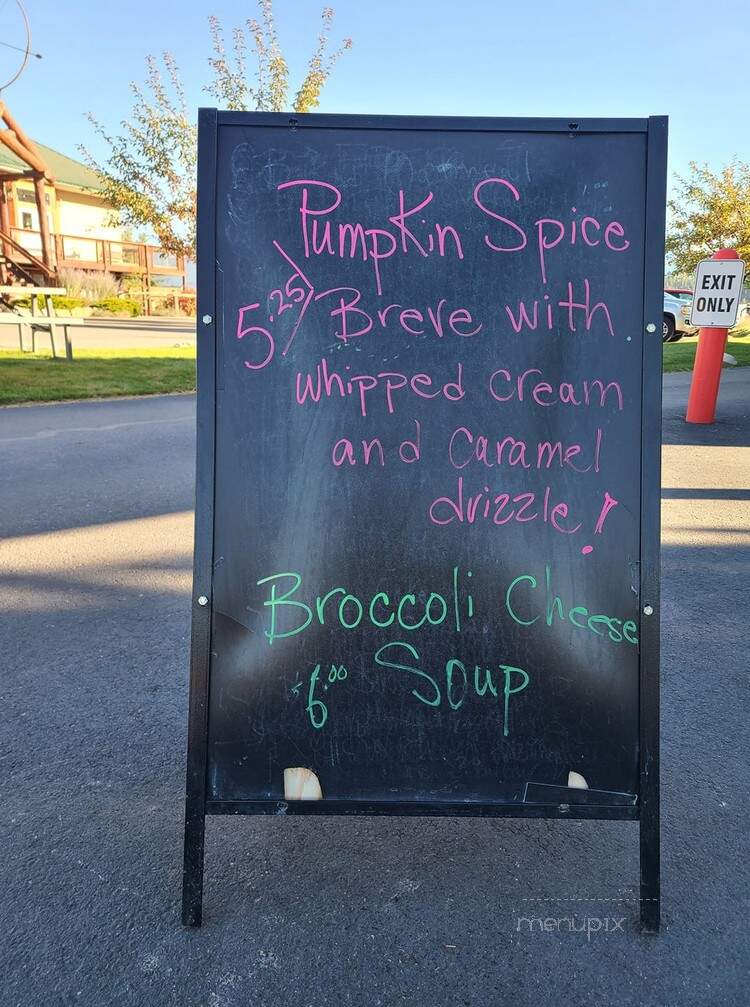 Pumpkin Spice
5.25 Breve with
whipped cream
and caramel
drizzle!
Broccoli Cheese
6.00 Soup
EXIT
ONLY
menupix